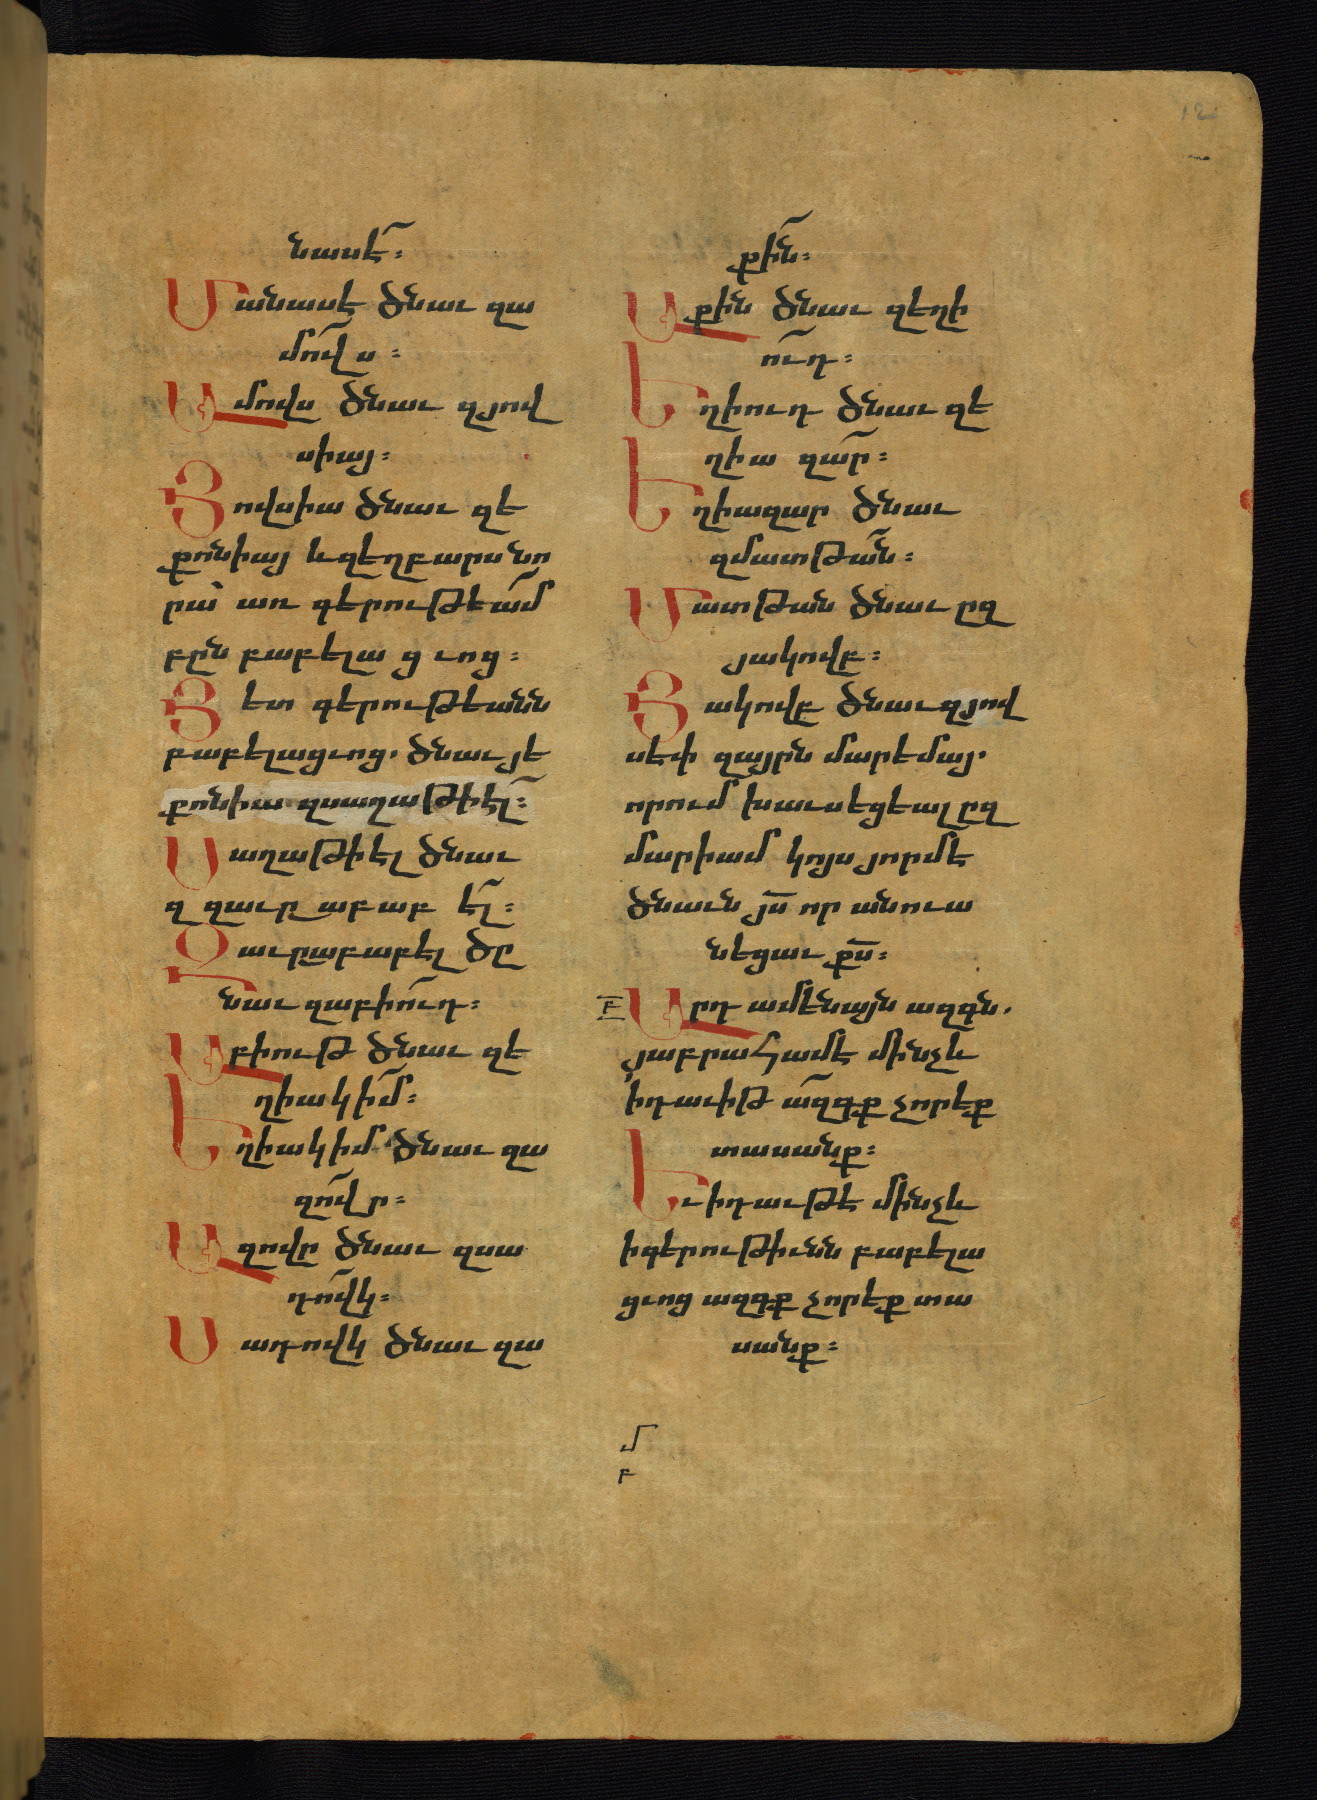 նասէ՜։
Մանասէ ծնաւ զա
մո՜վս։
Ամովս ծնաւ զյով
սիայ։
Յովսիա ծնաւ զե
քոնիայ և զեղբարս նո
րա՝ առ գերութեա՜մ
բըն բաբելացւոց։
Յետ գերութեանն
բաբելացւոց. ծնաւ յե
քոնիա զսաղաթիէ՜լ։
Սաղաթիէլ ծնաւ
զզաւրըաբաբէ՜լ։
Զաւրըաբաբէլ ծը
նաւ զաբիո՜ւդ։
Աբիութ ծնաւ զե
ղիակի՜մ։
Եղիակիմ ծնաւ զա
զո՜վր։
Ազովր ծնաւ զսա
դո՜վկ։
Սադովկ ծնաւ զա
քի՜ն։
Աքին ծնաւ զեղի
ո՜ւդ։
Եղիուդ ծնաւ զե
ղիազա՜ր։
Եղիազար ծնաւ
զմատթա՜ն։
Մատթան ծնաւ ըզ
յակովբ։
Յակովբ ծնաւ զյով
սեփ զայրն մարեմայ.
որում խաւսեցեալ ըզ
մարիամ կոյս յորմէ
ծնաւն յս որ անուա
նեցաւ քս։
Բ Արդ ամենայն ազգն.
յաբրահամէ մինչև
իդաւիթ ա՜զգք չորեք
տասանք։
Եւ իդաւթէ մինչև
իգերութիւնն բաբելա
ցւոց ազգք չորեք տա
սանք։
մ
բ
12